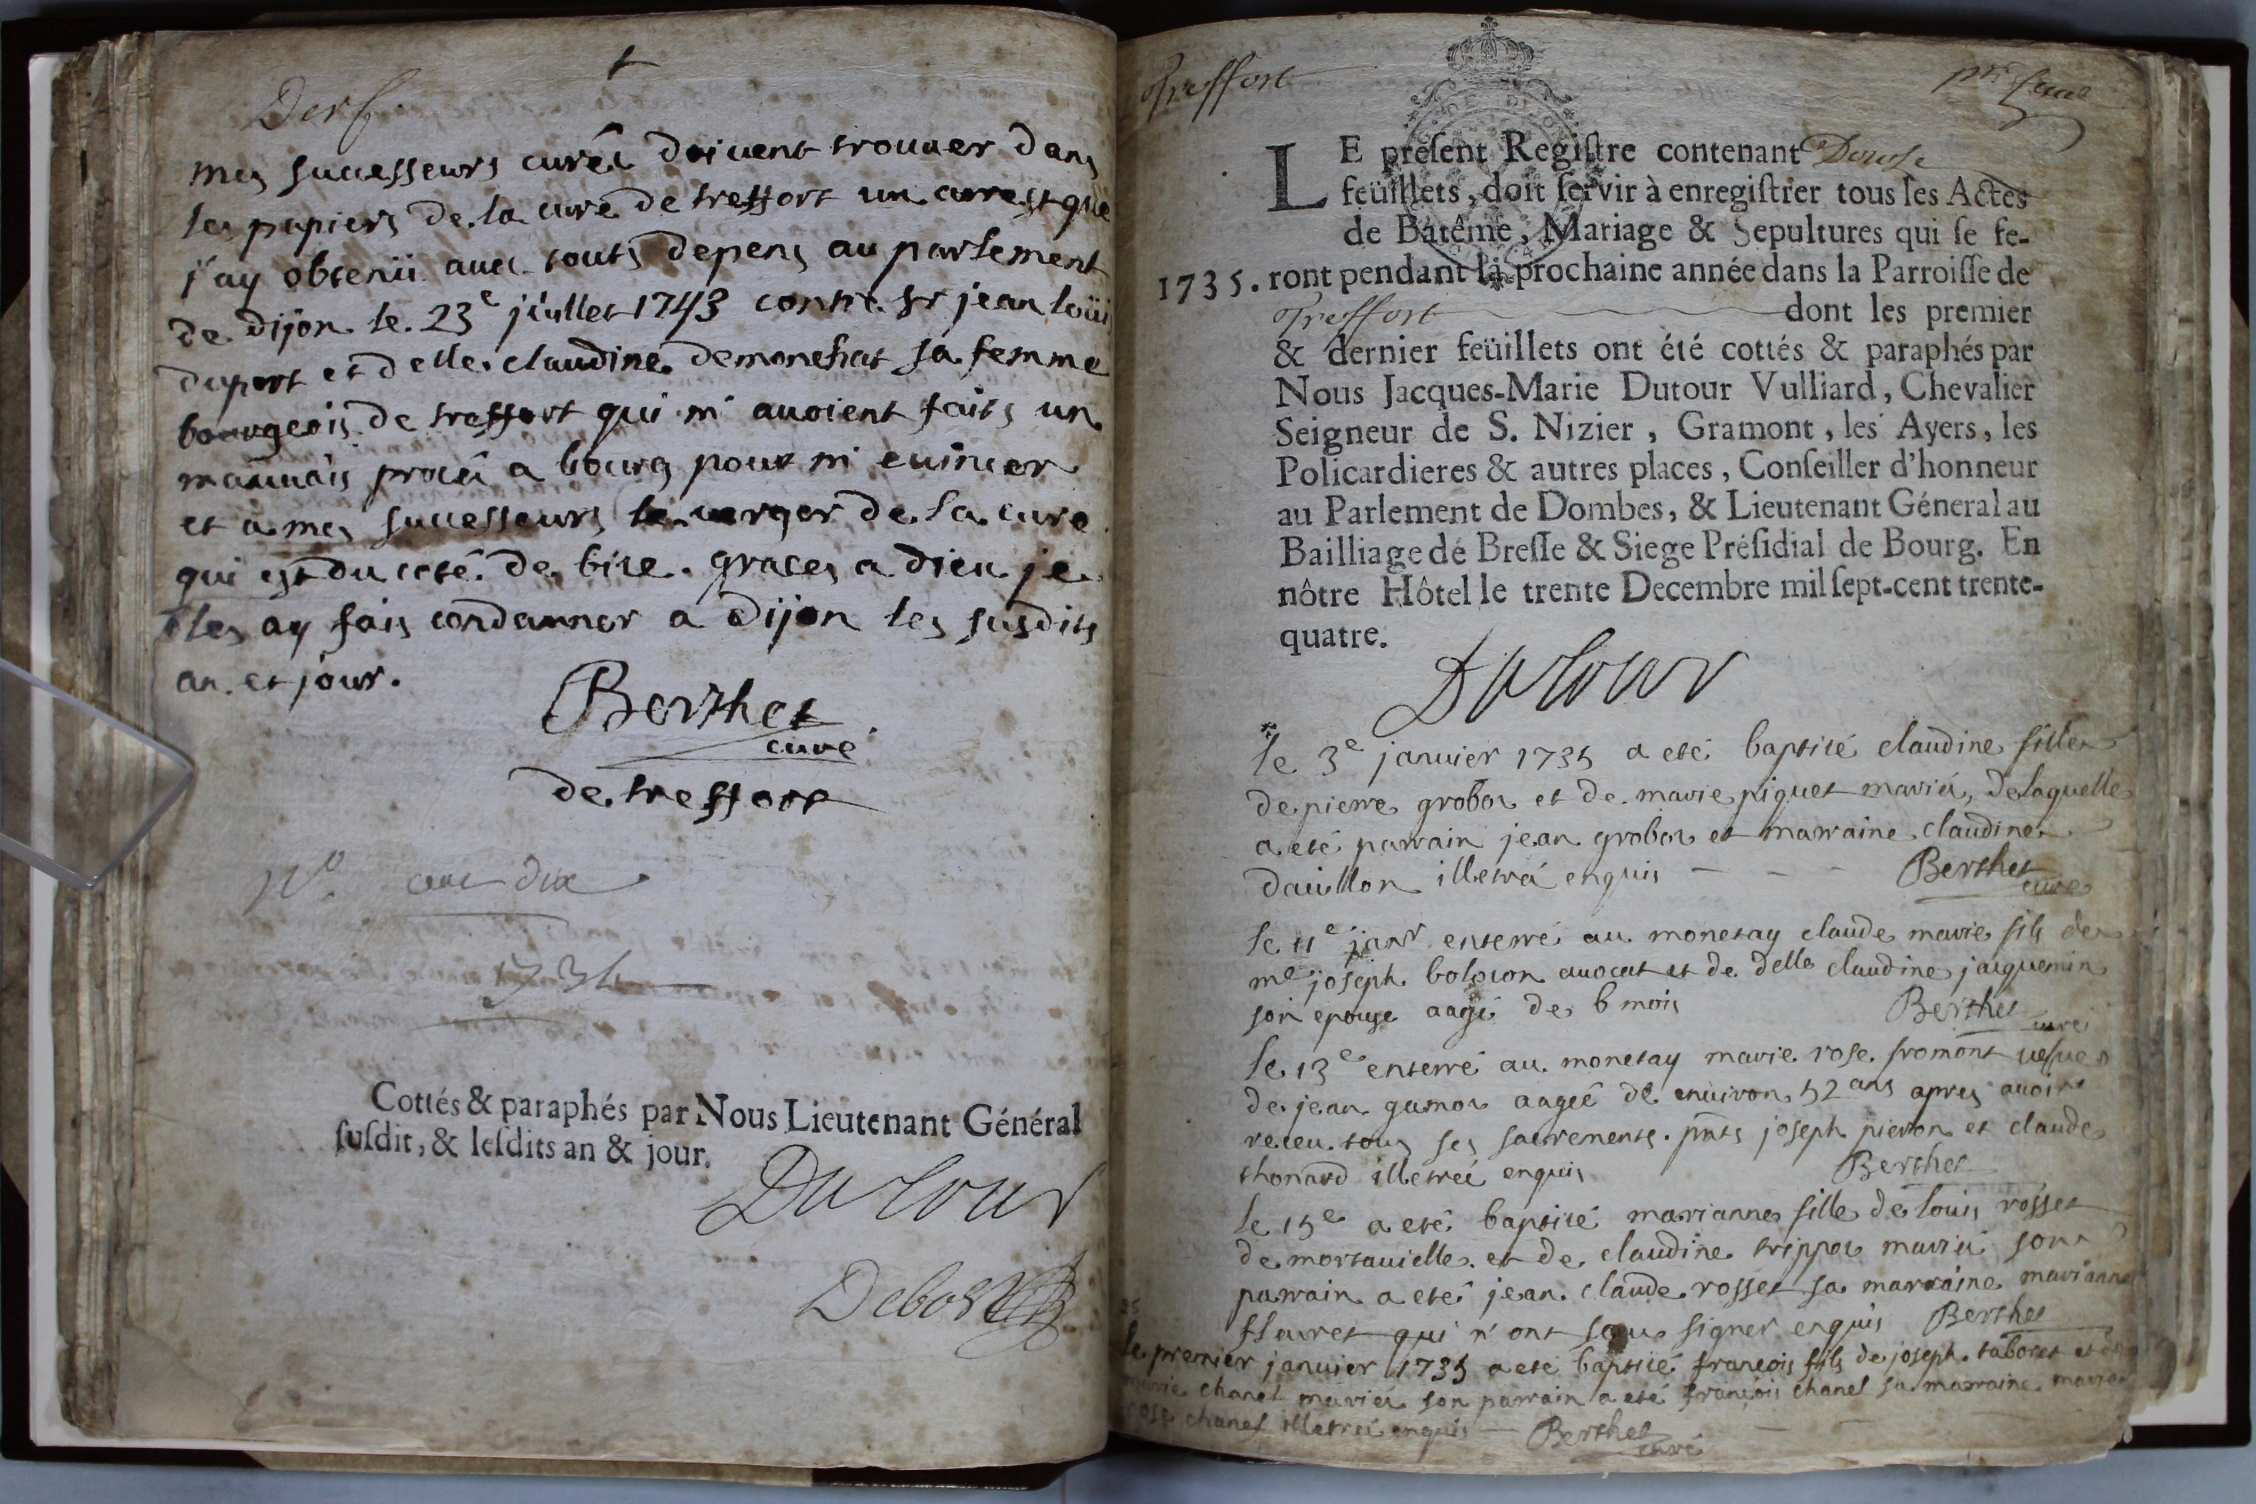 mes successeurs curés doivent trouver dans
les papiers de la cure de treffort un arrest que
j'ay obtenü avec touts depens au parlement
de dijon le 23e jüillet 1743 contre sr jean loüis
duport et delle claudine demonchat sa femme
bourgeois de treffort qui m'avoient faits un
mauvais procés a bourg pour m'evincer
et a mes successeurs le verger de la cure
qui est du coté de bise. graces a dieu je
les ay fais condamner a dijon les susdits
an et jour.
Berthet
curé
de treffort
1734
Cottés & paraphés par Nous Lieutenant Général
ſuſdit, & leſdits an & jour.
Dutour
Treffort
LE préſent Regiſtre contenant Douse
feüillets, doit ſervir à enregiſtrer tous les Actes
de Batême, Mariage & Sepultures qui ſe fe-
1735. ront pendant la prochaine année dans la Parroiſſe de
Treffort dont les premier
& dernier feüillets ont été cottés & paraphés par
Nous Jacques-Marie Dutour Vulliard, Chevalier
Seigneur de S. Nizier, Gramont, les Ayers, les
Policardieres & autres places, Conſeiller d'honneur
au Parlement de Dombes, & Lieutenant Géneral au
Bailliage de Breſſe & Siege Préſidial de Bourg. En
nôtre Hôtel le trente Decembre mil ſept-cent trente-
quatre.
Dutour
le 3e janvier 1735 a eté baptisé claudine fille
de pierre grobos et de marie piquet mariés, de laquelle
a eté parrain jean grobos et marraine claudine
davillon illetrés enquis Berthet
curé
le 11e janr enterré au monetay claude marie fils de
me joseph bolozon avocat et de delle claudine jacquemin
son epouse aagé de 6 mois Berthet
curé
le 13e enterré au monetay marie rose fromont vefve
de jean gamos aageé de environ 52 ans apres avoir
receu tous ses sacrements. pnts joseph pieron et claude
thonard illetreé enquis Berthet
le 15e a eté baptisé marianne fille de louis rosset
de mortavielle et de claudine trippos mariés son
parrain a eté jean claude rosset sa marraine marianne
flauret qui n'ont sceu signer enquis Berthet
le premier janvier 1735 a eté baptisé francois fils de joseph tabouret et de
marie chanel mariés son parrain a eté francois chanel sa marraine marie
rose chanel illetrés enquis Berthet
curé